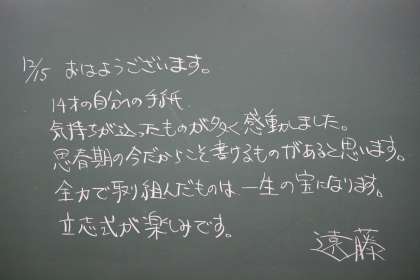 12/15 おはようございます。
14才の自分への手紙.
気持ちが込ったものが多く感動しました。
思春期の今だからこそ書けるものがあると思います。
全力で取り組んだものは一生の宝になります。
立志式が楽しみです。
遠藤